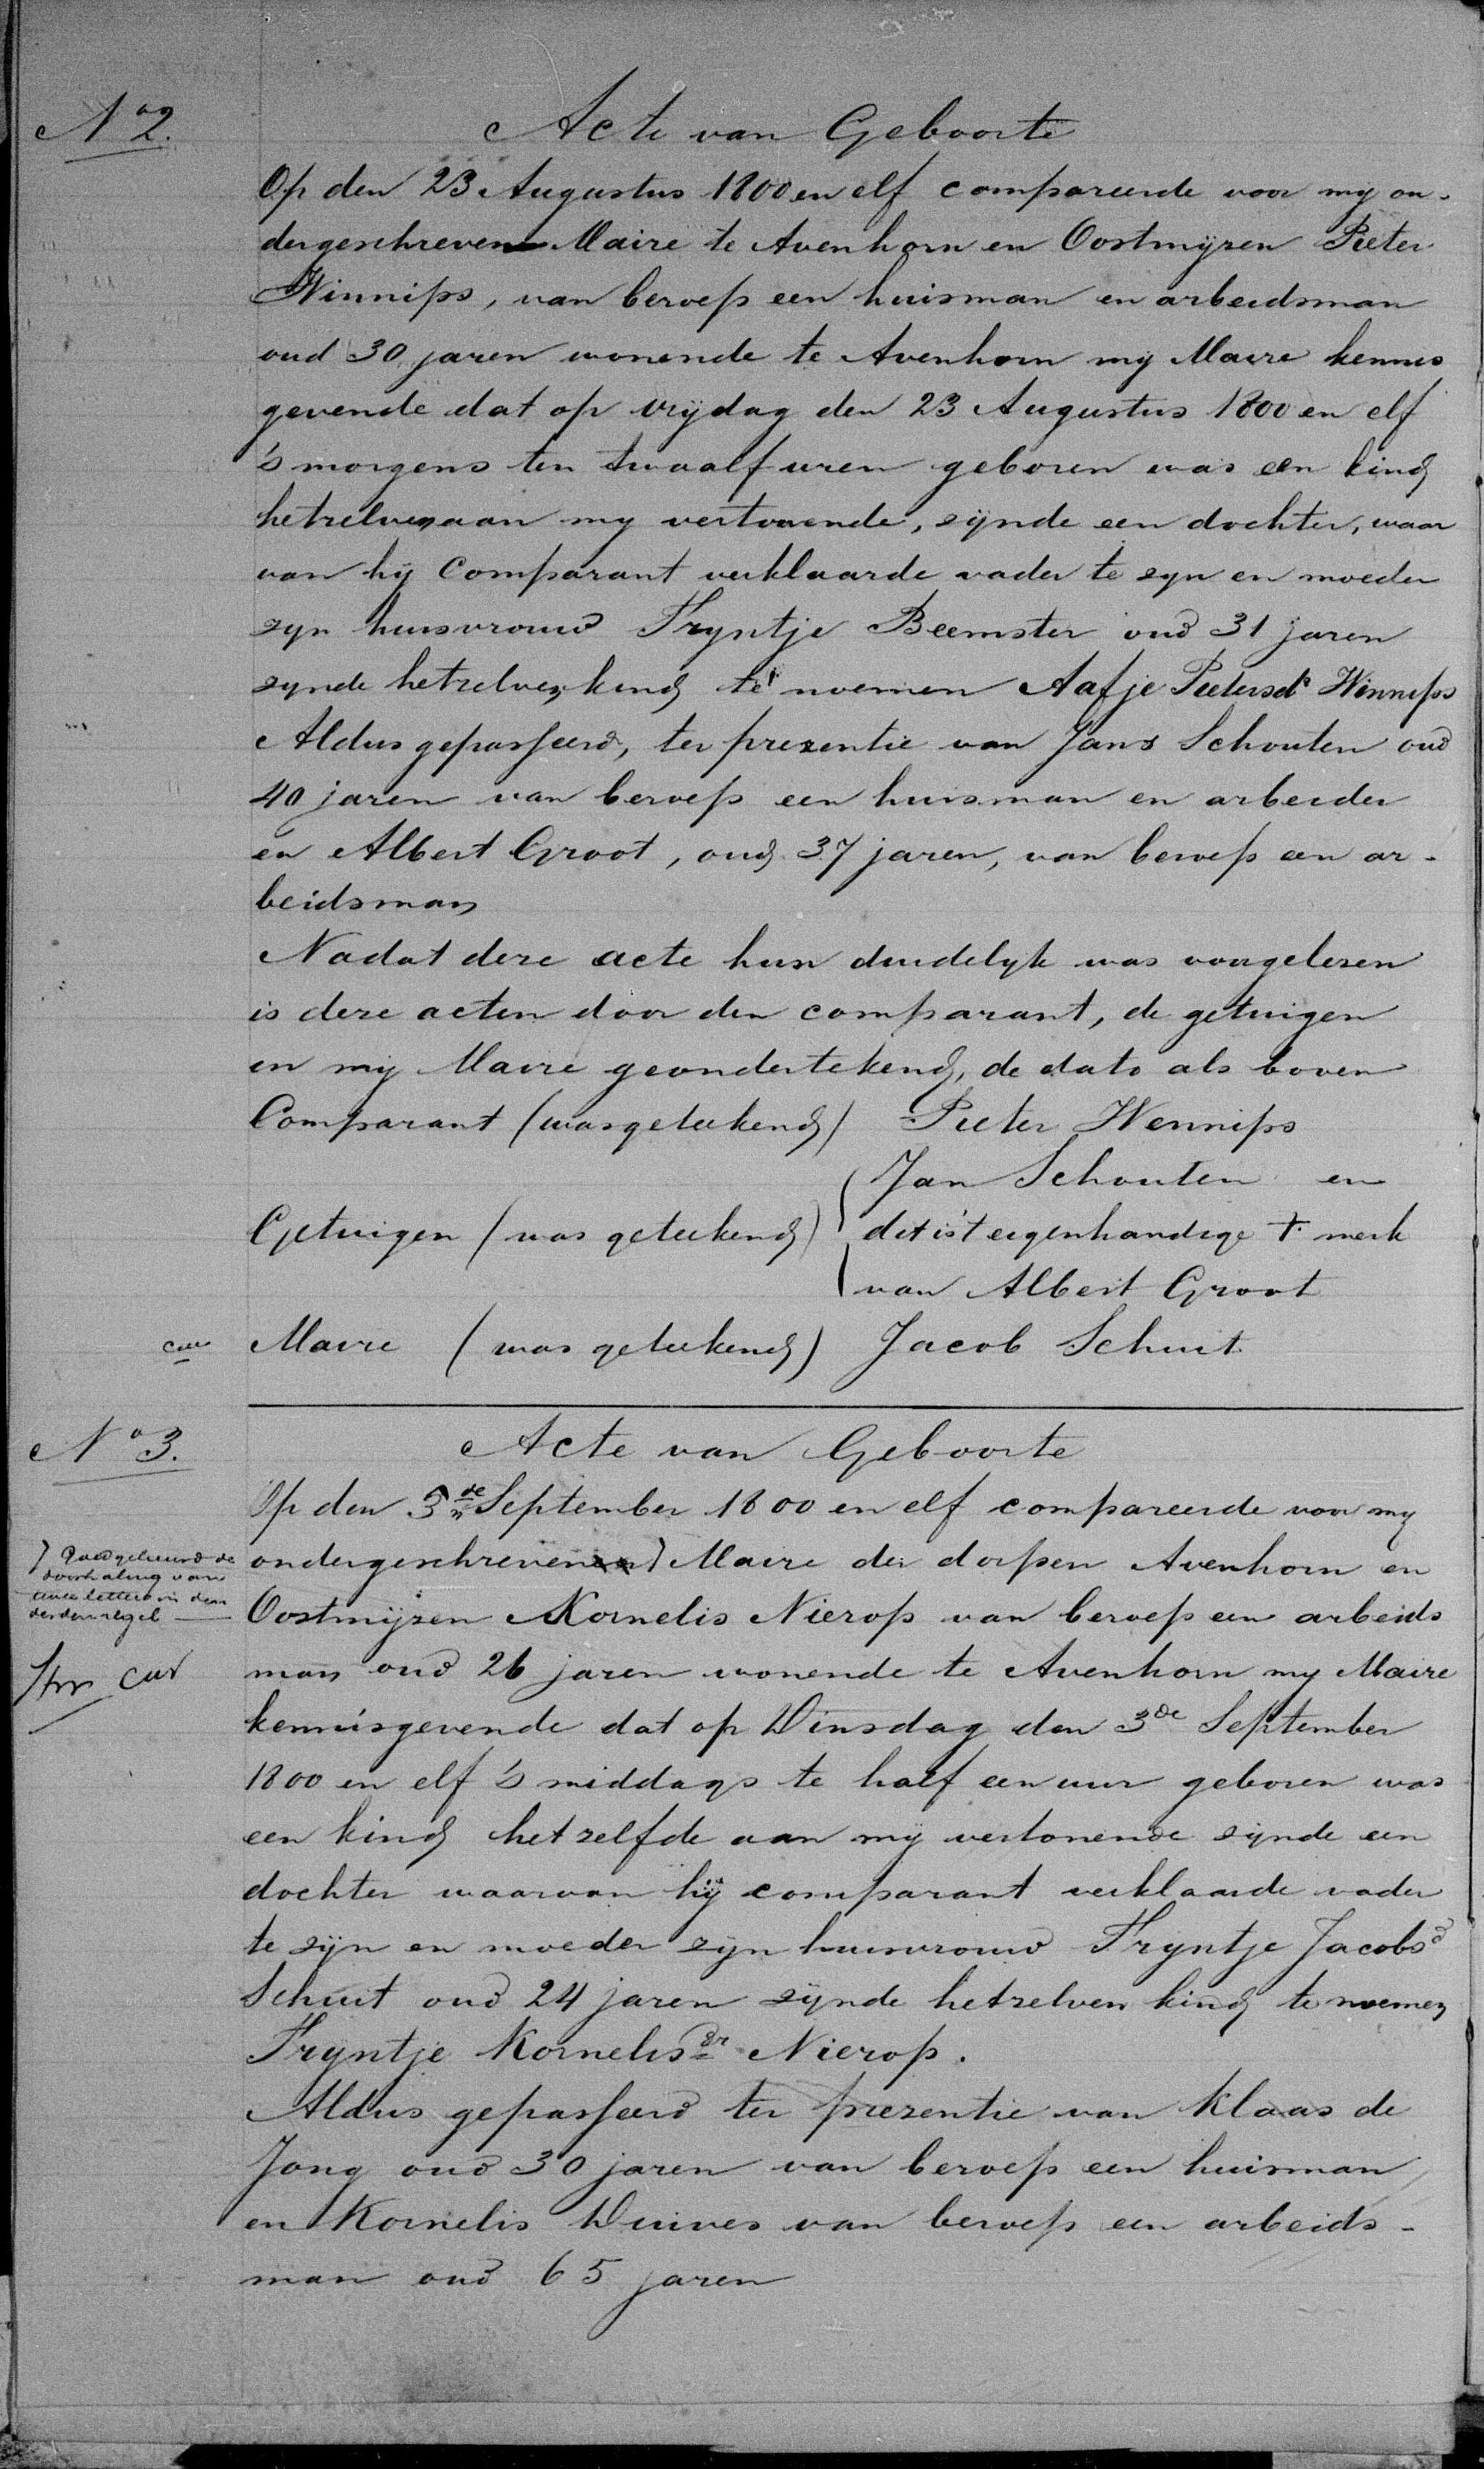 No 2.
Acte van Geboorte
Op den 23 Augustus 1800 en elf compareerde voor my on-
dergeschreven Maire te Avenhorn en Oostmijzen Pieter
Winnips, van beroep een huisman en arbeidsman
oud 30 jaren wonende te Avenhorn my Maire kennis
gevende dat op vrijdag den 23 Augustus 1800 en elf
's morgens ten twaalf uren geboren was een kind
hetzelven aan my vertonende, zijnde een dochter, waar
van hij Comparant verklaarde vader te zyn en moeder
zyn huisvrouw Tryntje Beemster oud 31 jaren
zynde hetzelven kind te noemen Aafje Pietersdr Winnips
Aldus gepasseerd, ter prezentie van Jans Schouten oud
40 jaren van beroep een huisman en arbeider
en Albert Groot, oud 37 jaren, van beroep een ar-
beidsman
Nadat deze acte hun duidelyk was voorgelezen
is deze acten door den comparant, de getuigen
en my Maire geondertekend, de dato als boven
Comparant (was geteekend) Pieter Wennips
Jan Schouten en
Getuigen (was geteekend) dit is 't eigenhandige + merk
van Albert Groot
Maire (was geteekend) Jacob Schuit
No 3.
Acte van Geboorte
Op den 3de September 1800 en elf compareerde voor my
ondergeschreven Maire der dorpen Avenhorn en
Oostmijzen Kornelis Nierop van beroep een arbeids
man oud 26 jaren wonende te Avenhorn my Maire
kennisgevende dat op Dinsdag den 3de September
1800 en elf 's middags te half een uur geboren was
een kind hetzelfde aan mij vertonende zijnde een
dochter waarvan hij comparant verklaarde vader
te zijn en moeder zijn huisvrouw Tryntje Jacobsd
Schuit oud 24 jaren zijnde hetzelven kind te noemen
Tryntje Kornelisdr Nierop.
Aldus gepasseerd ter prezentie van Klaas de
Jong oud 30 jaren van beroep een huisman
en Kornelis Duives van beroep een arbeids-
man oud 65 jaren
) Goedgekeurd de
doorhaling van
twee letters in den
derden regel